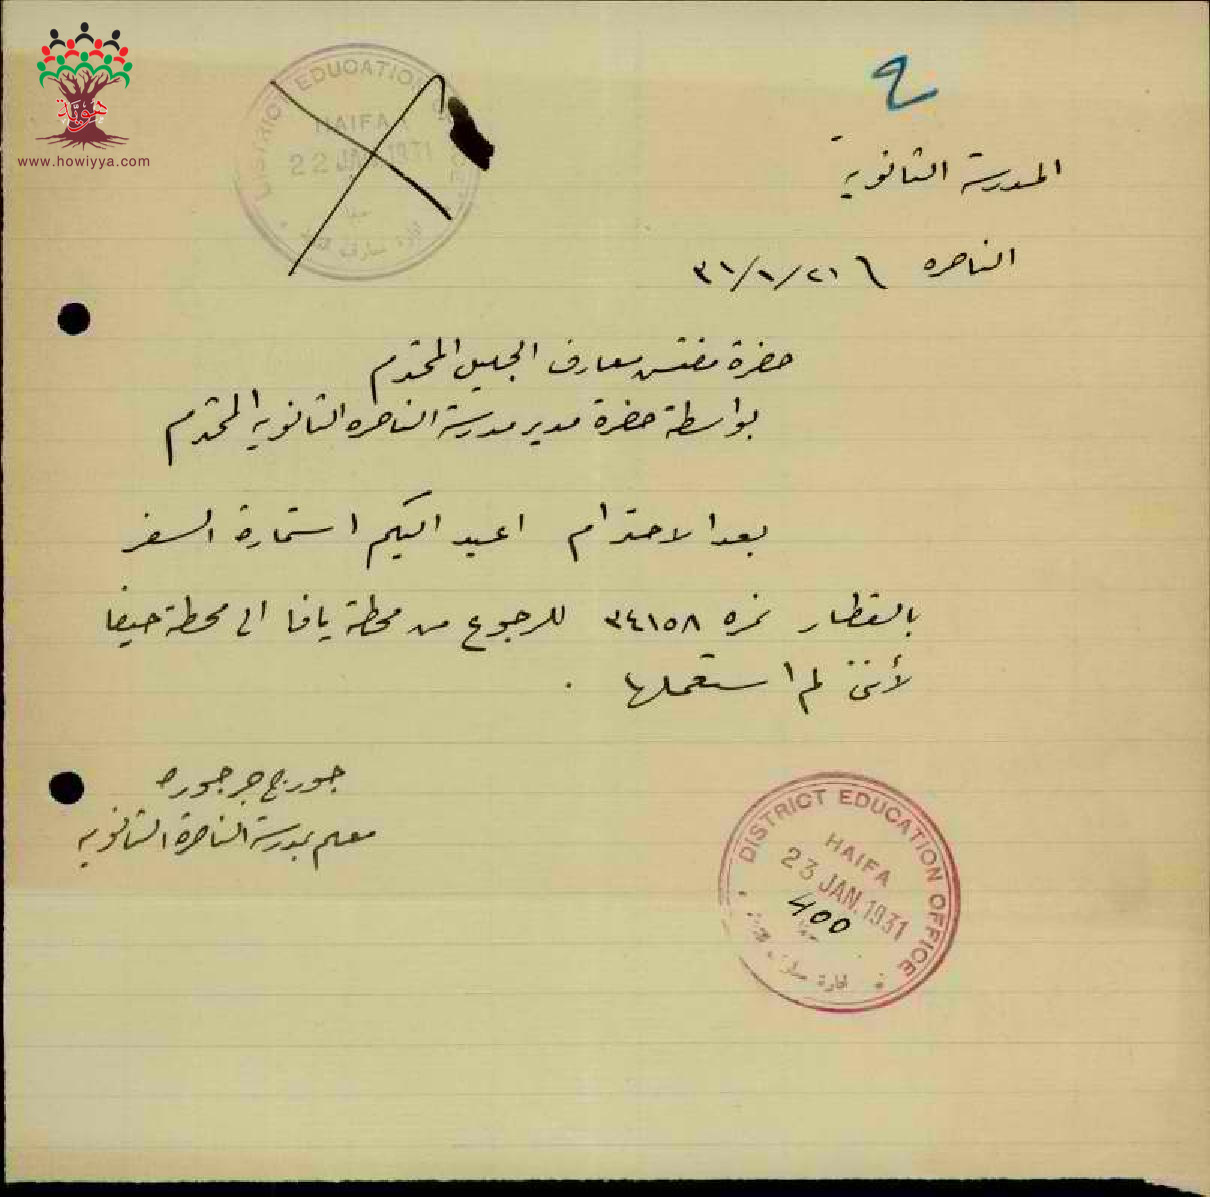 ٩
المدرسة الثانوية
الناصره ٢١/١/٣١
حضرة مفتش معارف الجليل المحترم
بواسطة حضرة مدير مدرسة الناصره الثانويه المحترم
بعد الاحترام اعيد اليكم استمارة السفر
بالقطار نمره ٣٤١٥٨ للرجوع من محطة يافا الى محطة حيفا
لأنني لم استعملها .
جورج خوري
معلم بمدرسة الناصرة الثانويه
DISTRICT EDUCATION
HAIFA
22 JAN 1931
DISTRICT EDUCATION OFFICE
HAIFA
23 JAN. 1931
400
هوية
www.howiyya.com